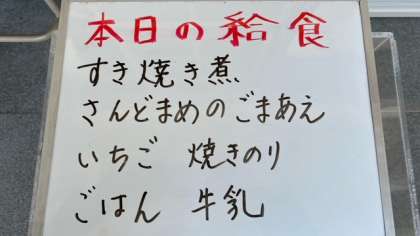 本日の給食
すき焼き煮
さんどまめのごまあえ
いちご 焼きのり
ごはん 牛乳